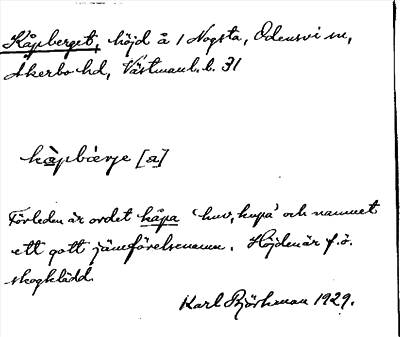 Kåpberget, höjd å 1 Nogsta, Odensvi sn,
Åkerbo hd, Västmanl. l. 31
kåpbàrje [a]
Förleden är ordet kåpa 'huv, kupa' och namnet
ett gott jämförelsenamn. Höjden är f.ö.
skogklädd.
Karl Björkman 1929.